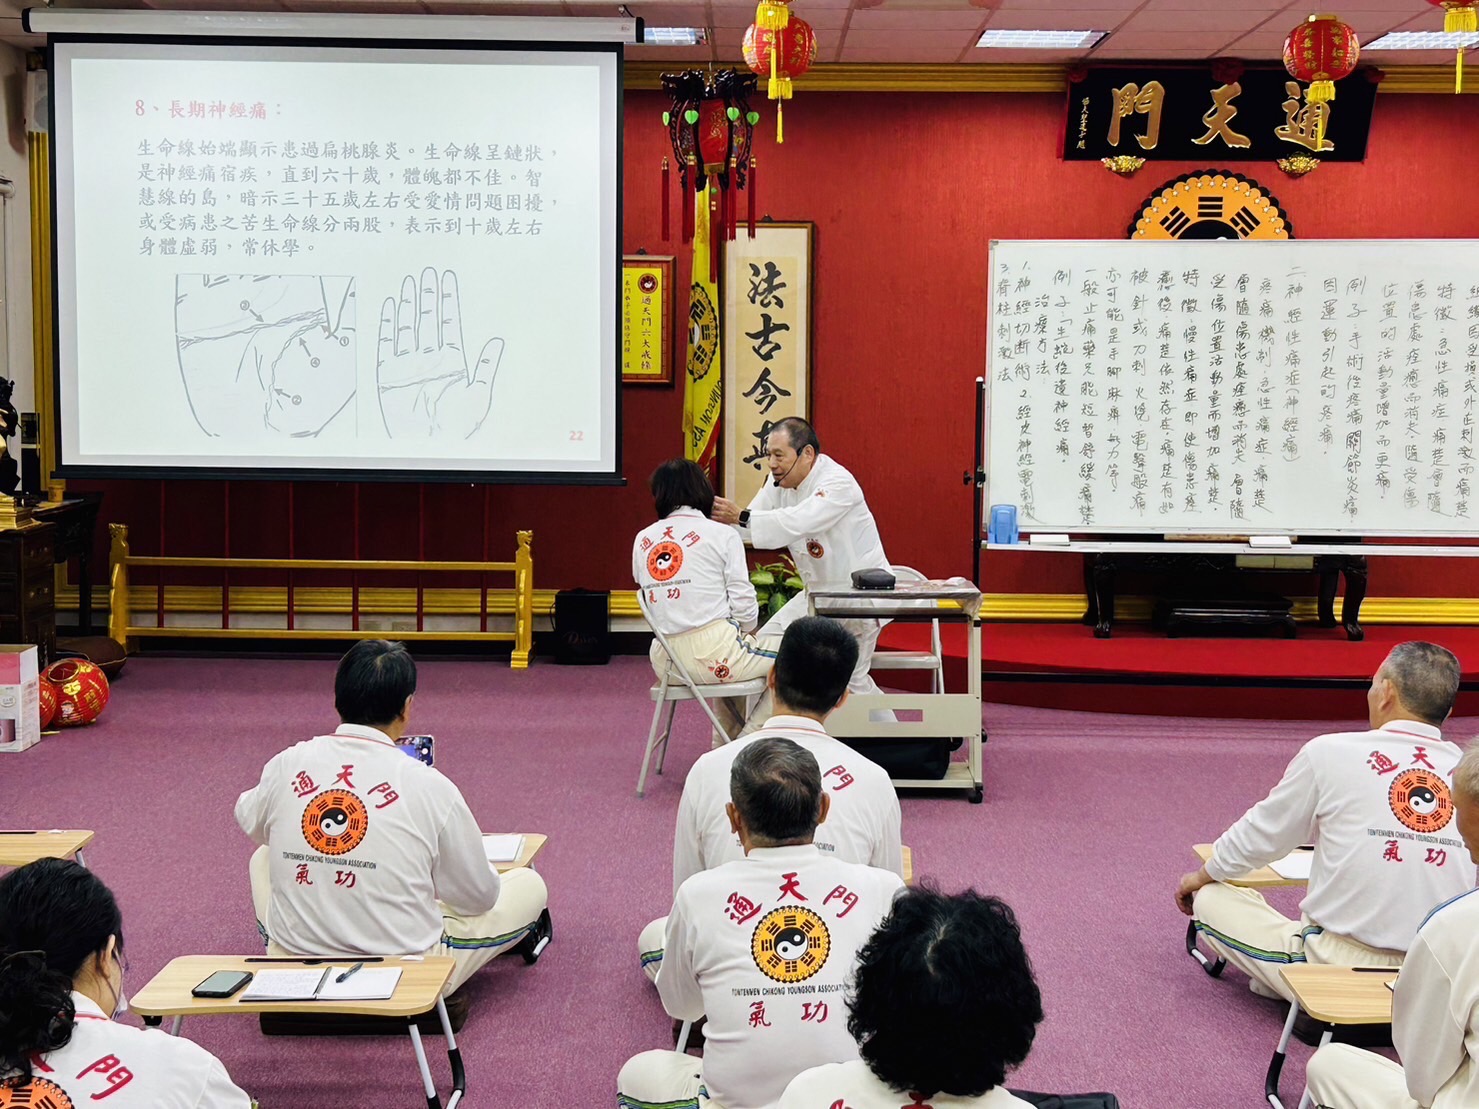 8、長期神經痛：
生命線始端顯示患過扁桃腺炎。生命線呈鏈狀，
是神經痛宿疾，直到六十歲，體魄都不佳。智
慧線的島，暗示三十五歲左右受愛情問題困擾，
或受病患之苦生命線分兩股，表示到十歲左右
身體虛弱，常休學。
③
①
④
②
22
門天通
法古今
通天門六大戒條
位置的活動量增加而更痛。
例子：手術後疼痛關節炎痛，
因運動引起的疼痛。
二神經性痛症(神經痛)
疼痛機制：急性痛症，痛楚
會隨傷患處痊癒而消失，會隨
受傷位置活動量而增加痛楚。
特徵：慢性痛症即使傷患痊
癒後，痛楚依然存在，痛楚有如
被針或刀刺，火燒，電擊般痛，
亦可能是手腳麻痺無力等。
一般止痛藥只能短暫舒緩痛楚，
例子：「生蛇後遺神經痛。
治療方法：
1.神經切斷術 2.經皮神經電刺激
3.脊柱刺激法
通天門
氣功
通天門
TONTENMEN CHIKONG YOUNGSON ASSOCIATION
氣功
門
通天門
TONTENMEN CHIKONG YOUNGSON ASSOCIATION
氣功
通天門
TONTENMEN CHIKONG YOUNGSON ASSOCIATION
氣功
門